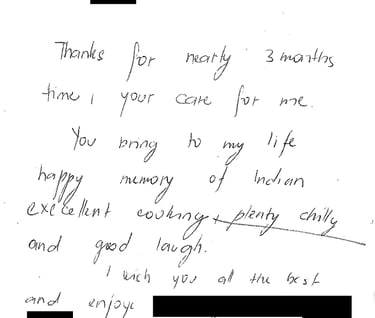 Thanks for nearly 3 months
time, your care for me.
You bring to my life
happy memory of Indian
excellent cooking + plenty chilly
and good laugh.
I wich you all the best
and enjoye